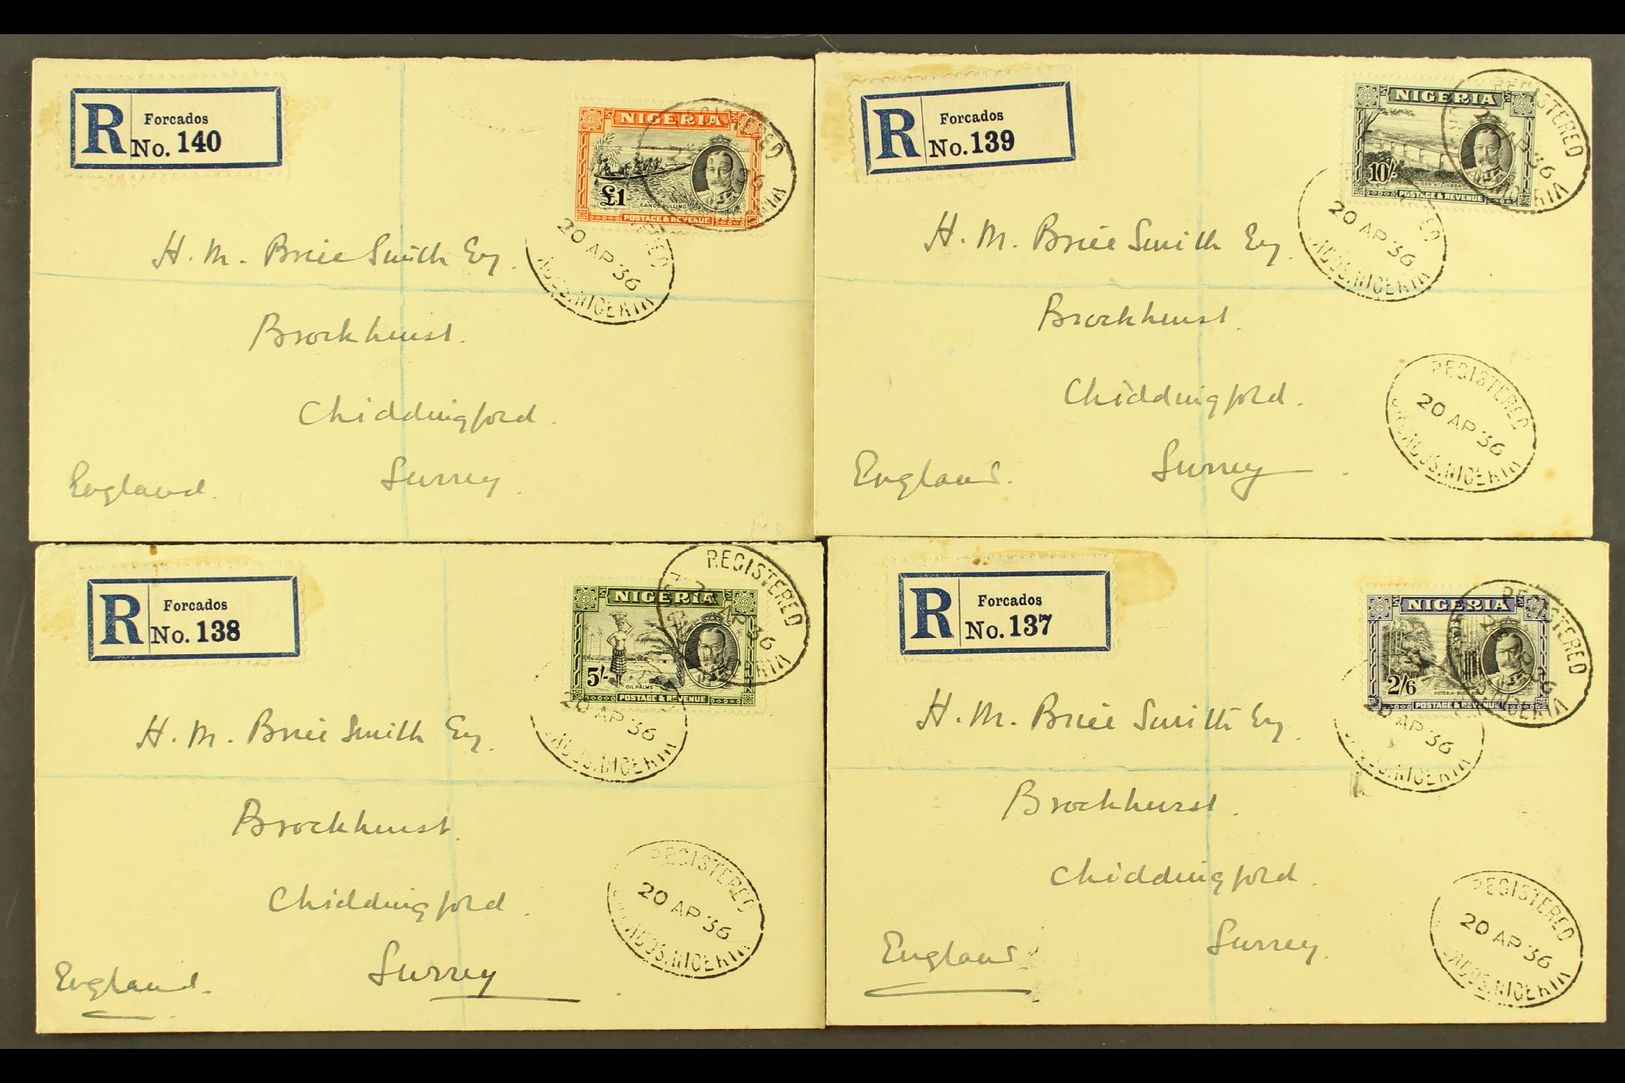 R Forcados
No. 140
NIGERIA
£1
POSTAGE & REVENUE
20 AP 36
H. M. Brice Smith Esq.
Brockhurst.
Chiddingfold.
Surrey.
England.
R Forcados
No. 139
NIGERIA
10/-
POSTAGE & REVENUE
REGISTERED
20 AP 36
NIGERIA
H. M. Brice Smith Esq.
Brockhurst.
Chiddingfold.
Surrey.
England.
REGISTERED
20 AP 36
NIGERIA
R Forcados
No. 138
NIGERIA
5/-
OIL PALMS
POSTAGE & REVENUE
REGISTERED
20 AP 36
NIGERIA
H. M. Brice Smith Esq.
Brockhurst.
Chiddingfold.
Surrey
England.
REGISTERED
20 AP 36
NIGERIA
R Forcados
No. 137
NIGERIA
2/6
POSTAGE & REVENUE
REGISTERED
20 AP 36
NIGERIA
H. M. Brice Smith Esq.
Brockhurst.
Chiddingfold.
Surrey.
England
REGISTERED
20 AP 36
NIGERIA